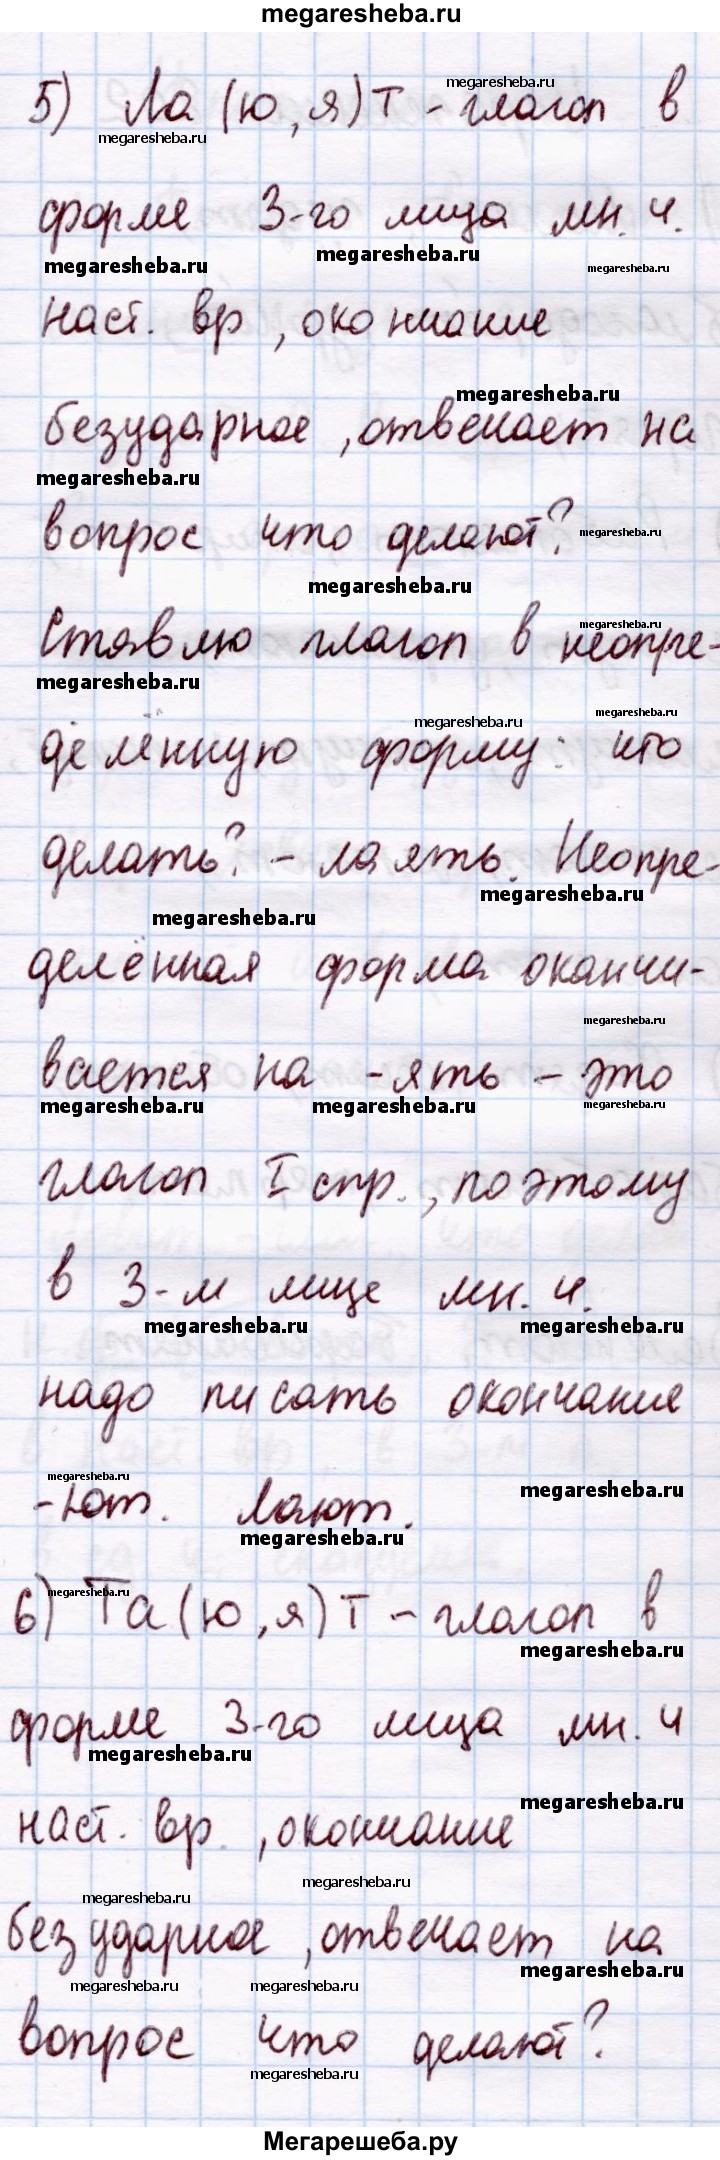 megaresheba.ru
5) Ла (ю, я) т - глагол в
форме 3-го лица мн. ч.
наст. вр, окончание
безударное, отвечает на
вопрос что делают?
Ставлю глагол в неопре-
делённую форму: что
делать? - лаять. Неопре-
делённая форма оканчи-
вается на -ять - это
глагол I спр., поэтому
в 3-м лице мн. ч.
надо писать окончание
-ют. Лают.
6) Та (ю, я) т - глагол в
форме 3-го лица мн. ч
наст. вр., окончание
безударное, отвечает на
вопрос что делают?
Мегарешеба.ру